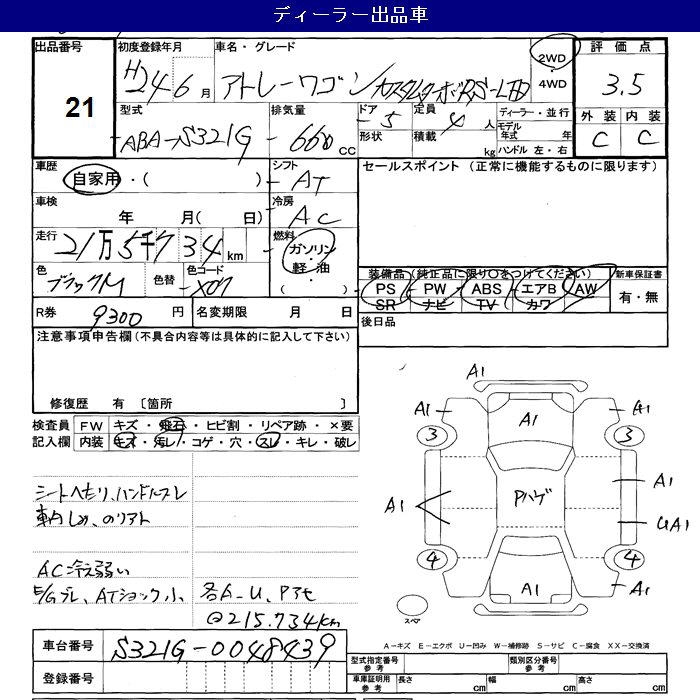 ディーラー出品車
出品番号
21
初度登録年月
H24 6 月
車名・グレード
アトレーワゴン カスタムターボRS-LTD
2WD
・
4WD
評価点
3.5
外装 内装
C C
型式
ABA-S321G
排気量
660 cc
ドア
5
形状
定員
4 人
積載 kg
ディーラー・並行
モデル年式 年
ハンドル 左・右
車歴
自家用・( )
シフト
AT
セールスポイント (正常に機能するものに限ります)
車検
年 月( 日)
冷房
AC
走行
21万5千734 km
燃料
ガソリン
・
軽油
・
( )
色
ブラックM
色替
色コード
X07
装備品(純正品に限り○をつけてください)
PS ・ PW ・ ABS ・ エアB AW
SR ナビ TV カワ
新車保証書
有・無
R券
9300 円
名変期限 月 日
後日品
注意事項申告欄(不具合内容等は具体的に記入して下さい)
修復歴 有 〔箇所 〕
検査員 FW キズ・飛石・ヒビ割・リペア跡・×要
記入欄 内装 キズ・汚レ・コゲ・穴・スレ・キレ・破レ
シートヘモリ、ハンドルスレ
車内しみ、のりアト
AC冷え弱い
E/Gブレ、ATショック小、
各A-U、Pアセ
@215.734km
A1
A1
A1
A1
3
3
A1
Pハゲ
A1
UA1
4
4
A1
A1
スペア
A-キズ E-エクボ U-凹み W-補修跡 S-サビ C-腐食 XX-交換済
車台番号
S321G-0048439
登録番号
型式指定番号
参考
類別区分番号
参考
車庫証明用
参考
長さ cm
幅 cm
高さ cm